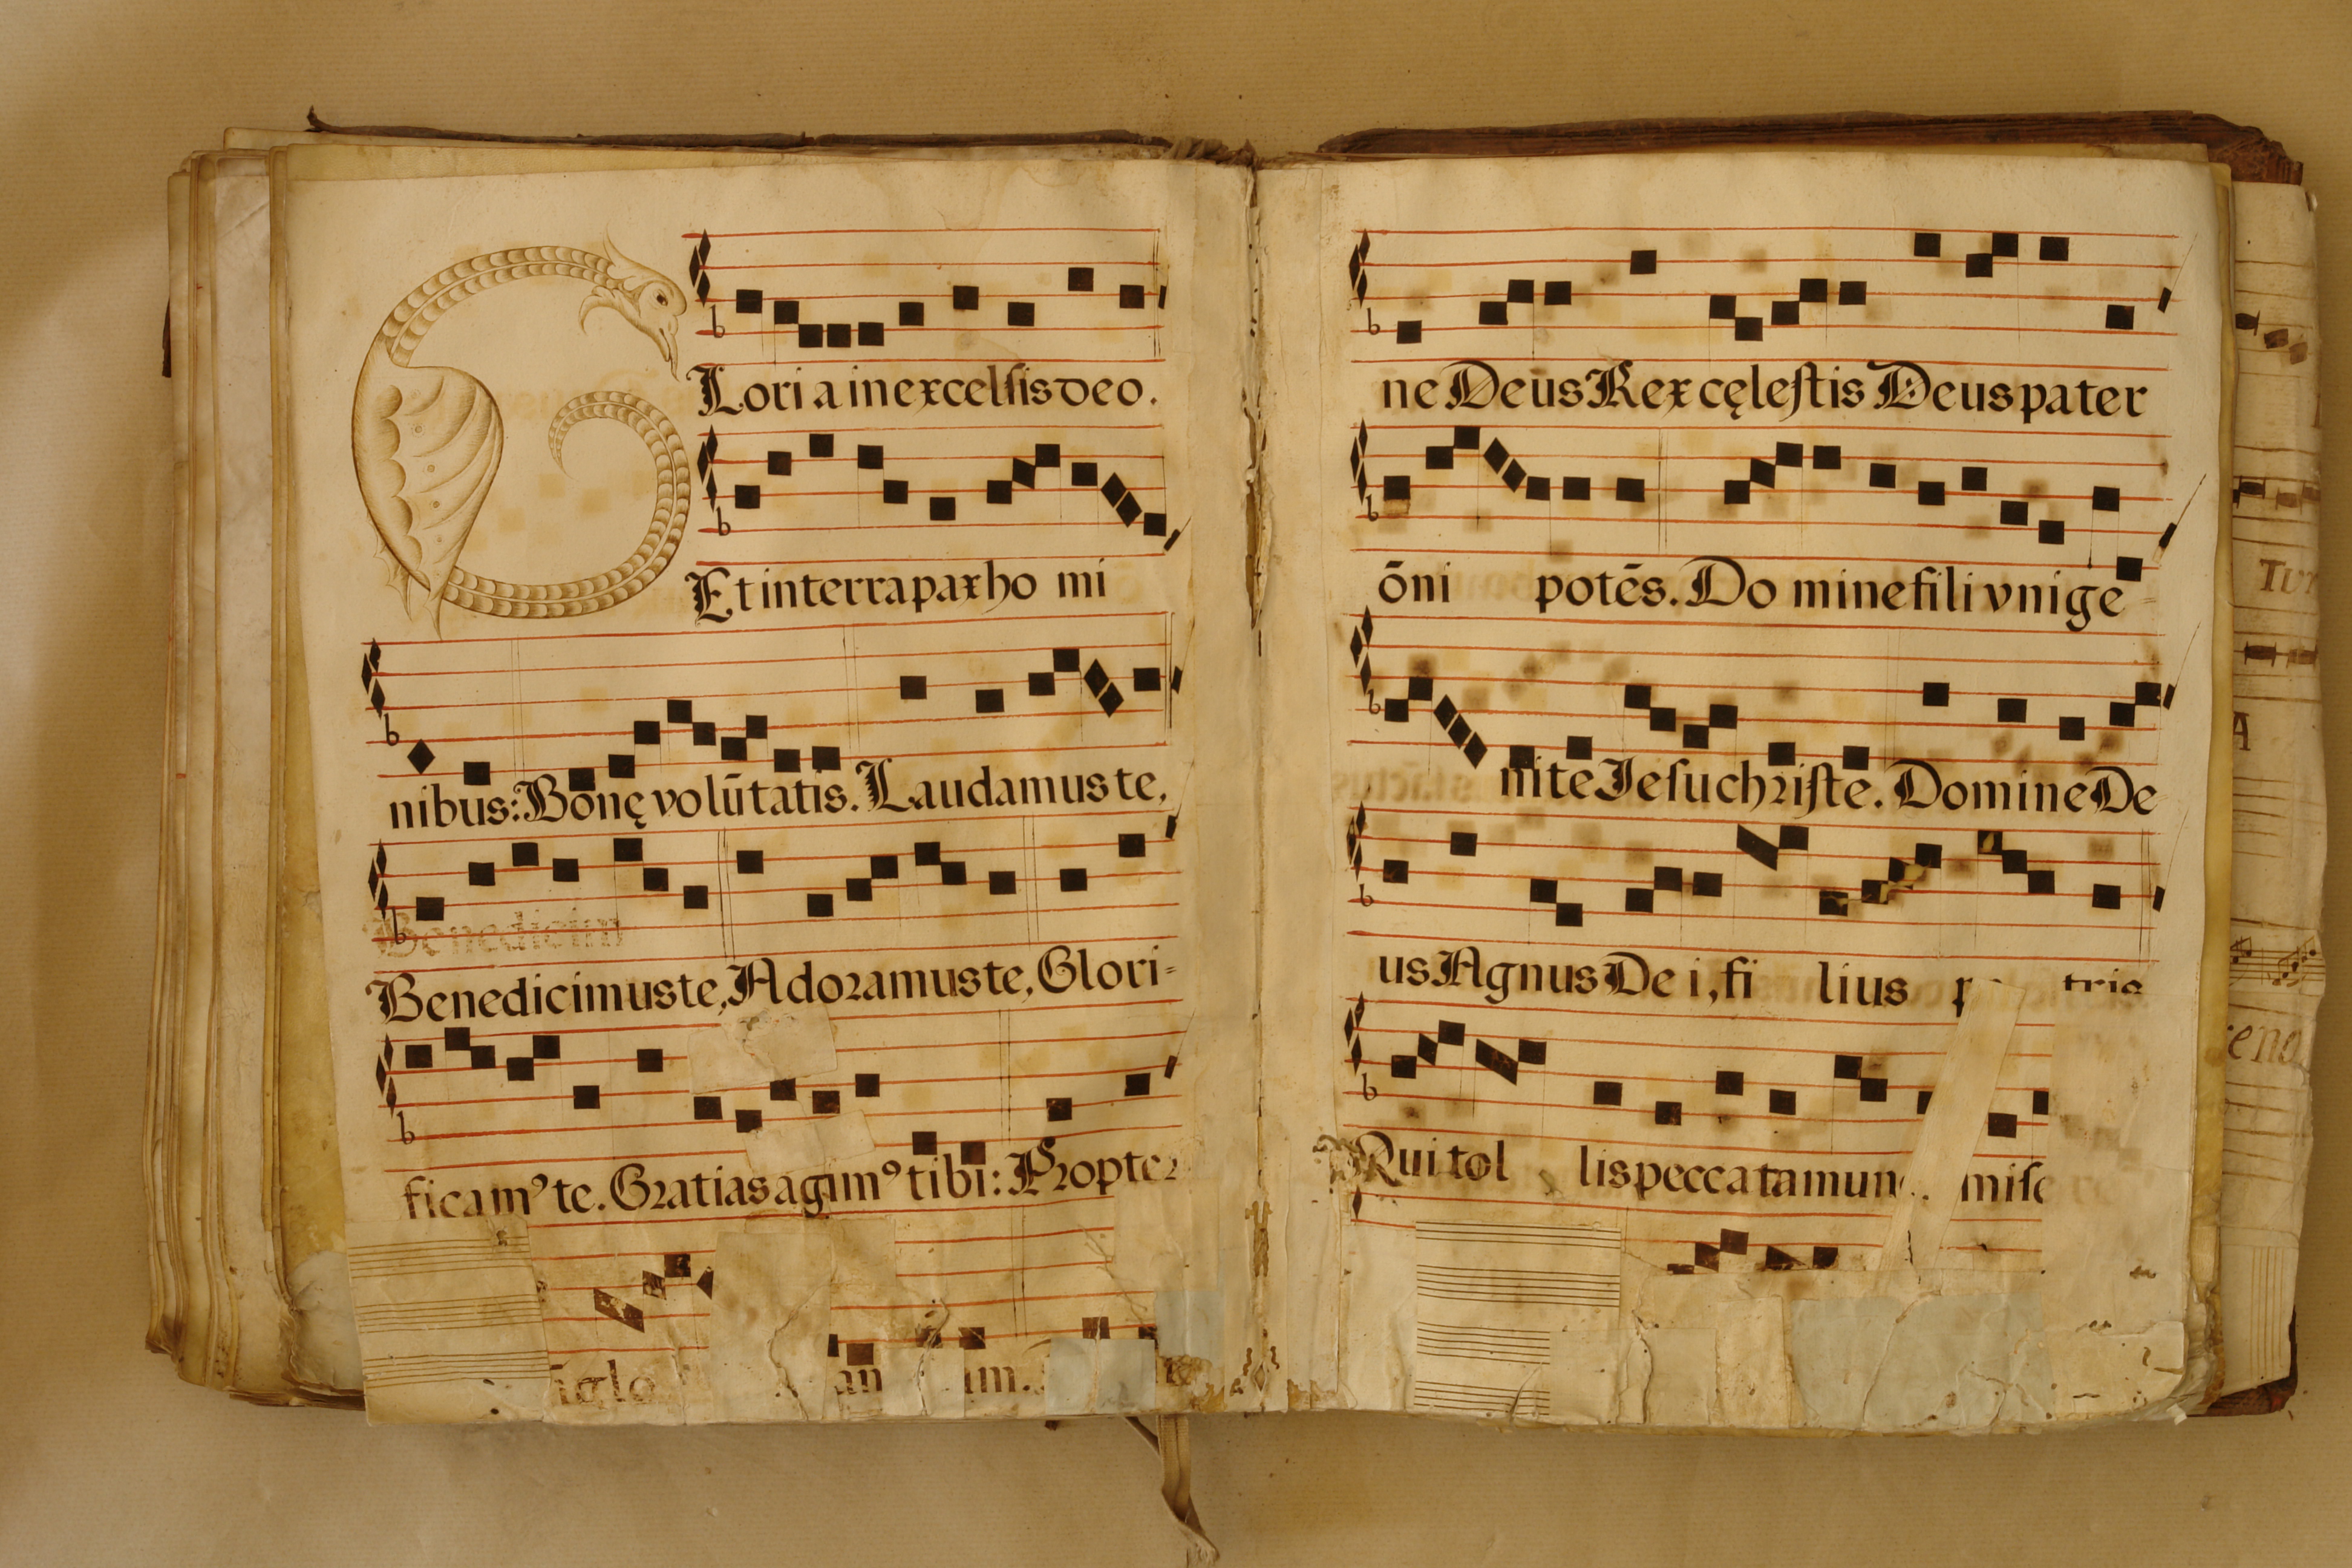 GLoria in excelsis deo.
Et in terra pax ho mi
nibus: Bonę volūtatis. Laudamus te,
Benedicim
Benedicimus te, Adoramus te, Glori-
ficamꝰ te. Gratias agimꝰ tibi: Propter
ne Deus Rex cęlestis Deus pater
ōni potēs. Do mine fili vnige-
nite Iesu christe. Domine De
us Agnus De i, fi lius p tris
Qui tol lis peccata mun mise